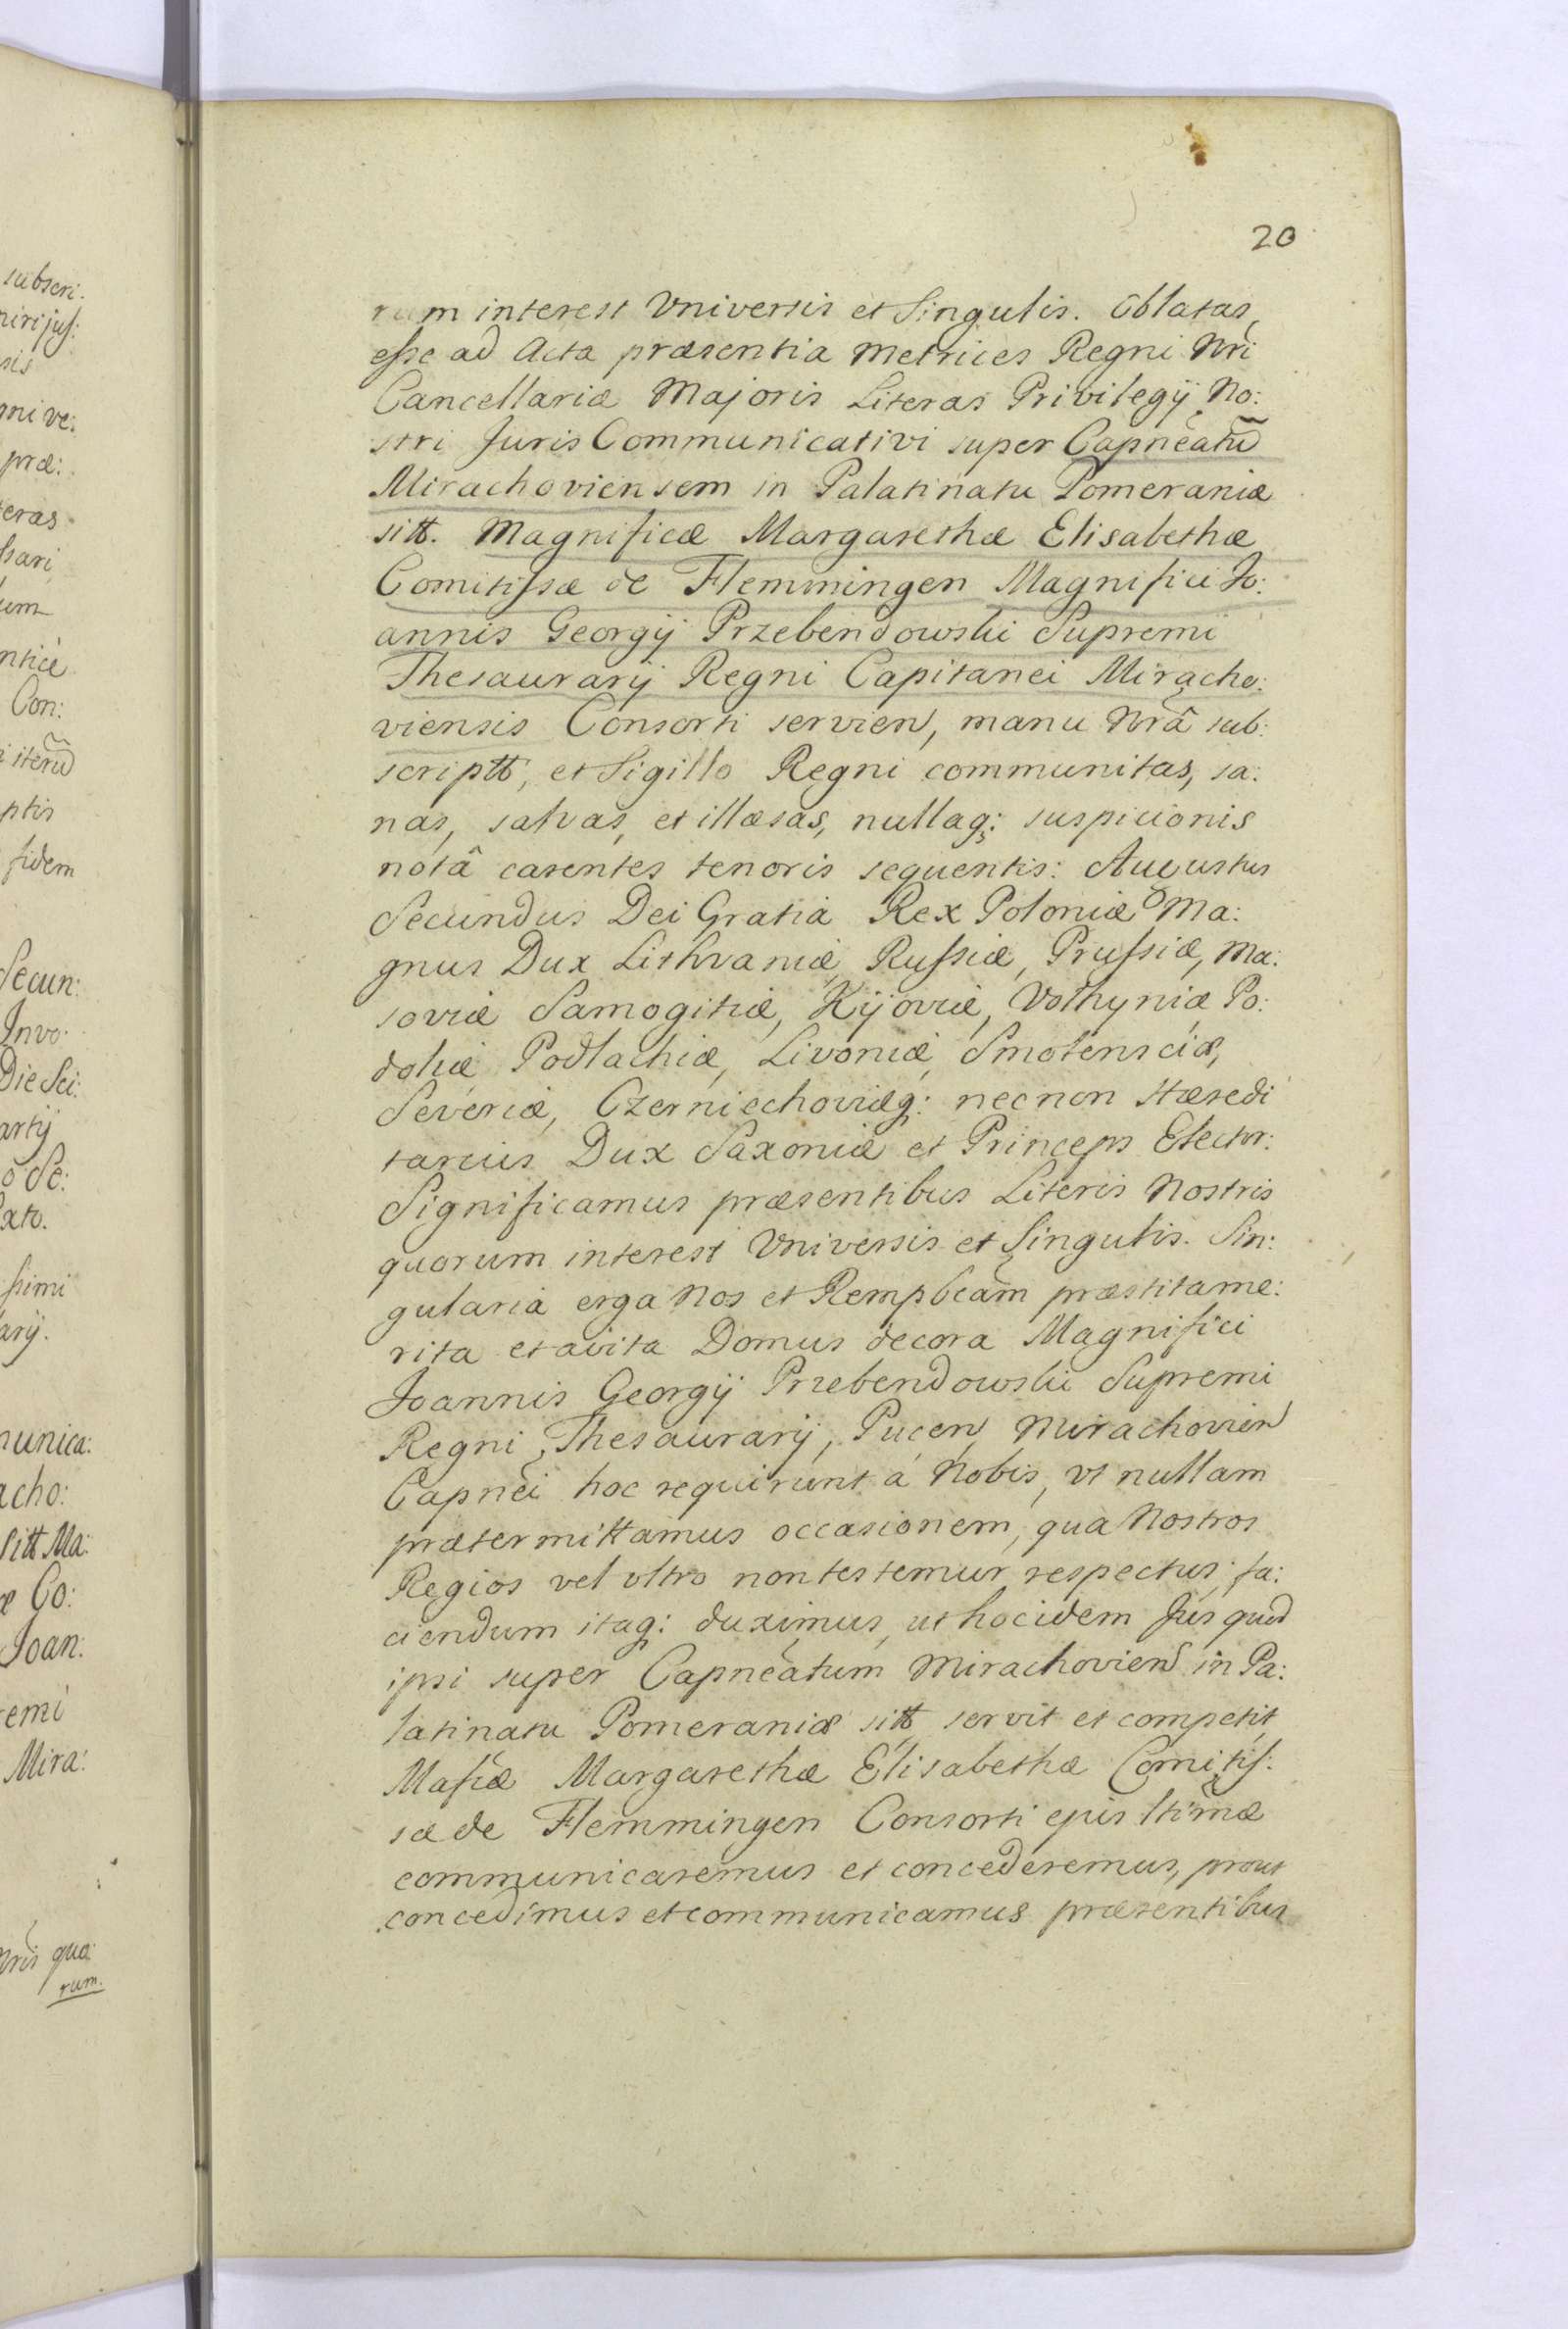 20
rum interest Universis et Singulis. Oblatas,
esse ad Acta præsentia Metrices Regni Nrĩ
Cancellariæ Majoris Literas Privilegÿ No:
stri Juris Communicativi super Capneatũ
Mirachoviensem in Palatinatu Pomeraniæ
sitt. Magnificæ Margarethæ Elisabethæ
Comitissæ de Flemmingen Magnifici Jo:
annis Georgÿ Przebendowski Supremi
Thesaurarÿ Regni Capitanei Miracho:
viensis Consorti servien, manu Nrâ sub:
scriptt, et Sigillo Regni communitas, sa:
nas, salvas, et illæsas, nullaq: suspicionis
notâ carentes tenoris sequentis: Augustus
Secundus Dei Gratia Rex Poloniæ Ma:
gnus Dux Lithvaniæ, Russiæ, Prussiæ, Ma:
soviæ Samogitiæ, Kijoviæ, Volhyniæ Po:
doliæ, Podlachiæ, Livoniæ, Smolensciæ,
Severiæ, Czerniechoviæq: necnon Hæredi
tarius Dux Saxoniæ et Princeps Elector:
Significamus præsentibus Literis Nostris
quorum interest Universis et Singulis. Sin:
gularia erga Nos et Rempbcam̃ præstitame:
rita et avita Domus decora Magnifici
Joannis Georgÿ Przebendowski Supremi
Regni Thesaurarÿ, Pucen, Mirachovien
Capnei hoc requirunt á Nobis, vt nullam
prætermittamus occasionem, qua Nostros
Regios vel vltro non testemur respectus; fa:
ciendum itaq: duximus, ut hoc idem Jus quod
ipsi super Capneatum Mirachovien in Pa:
latinatu Pomeraniæ sitt, servit et competit,
Mafiæ Margarethæ Elisabethæ Comitis:
sæ de Flemmingen Consorti ejus ltimæ
communicaremus et concederemus, prout
concedimus et communicamus præsentibus
subscri:
sis
præ:
Con:
iterũ
ptis
fidem
Secun:
Invo:
Die Sci:
simi
munica:
acho:
Sitt Ma:
Co:
Joan:
emi
Mira:
quo:
rum.